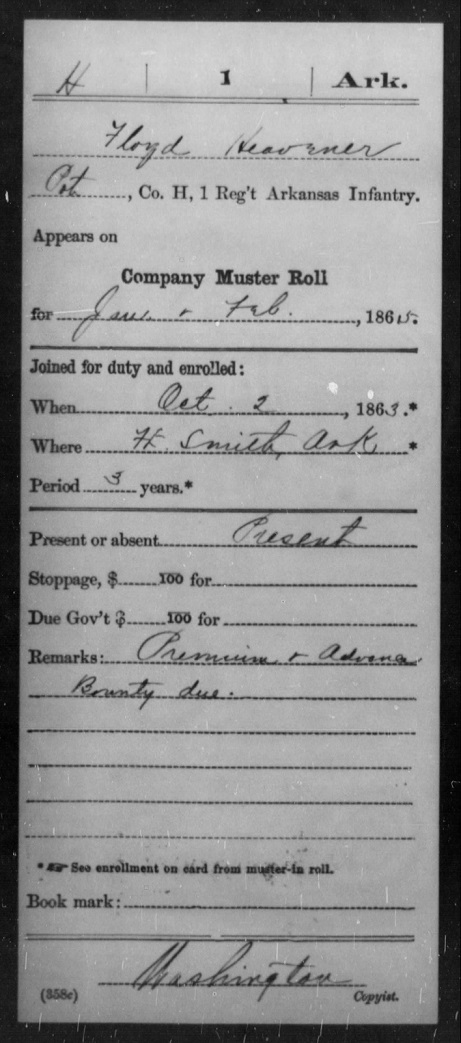 H | 1 | Ark.
Floyd Heavener
Pvt, Co. H, 1 Reg't Arkansas Infantry.
Appears on
Company Muster Roll
for Jan. & Feb., 1865.
Joined for duty and enrolled:
When Oct. 2, 1863.*
Where Ft. Smith, Ark *
Period 3 years.*
Present or absent Present
Stoppage, $ 100 for
Due Gov't $ 100 for
Remarks: Premium & Advance
Bounty due.
* See enrollment on card from muster-in roll.
Book mark:
Washington
(358c) Copyist.